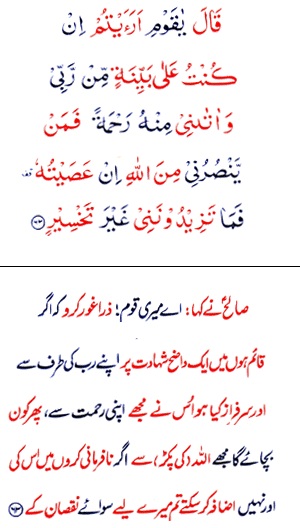 قَالَ يٰقَوْمِ اَرَءَيْتُمْ اِنْ
كُنْتُ عَلٰى بَيِّنَةٍ مِّنْ رَّبِّيْ
وَاٰتٰىنِيْ مِنْهُ رَحْمَةً فَمَنْ
يَّنْصُرُنِيْ مِنَ اللّٰهِ اِنْ عَصَيْتُهٗ
فَمَا تَزِيْدُوْنَنِيْ غَيْرَ تَخْسِيْرٍ
صالحؑ نے کہا: اے میری قوم؛ ذرا غور کرو کہ اگر
قائم ہوں میں ایک واضح شہادت پر اپنے رب کی طرف سے
اور سرفراز کیا ہو اُس نے مجھے اپنی رحمت سے، پھر کون
بچائے گا مجھے اللہ (کی پکڑ) سے اگر نافرمانی کروں میں اس کی
اور نہیں اضافہ کر سکتے تم میرے لیے سوائے نقصان کے